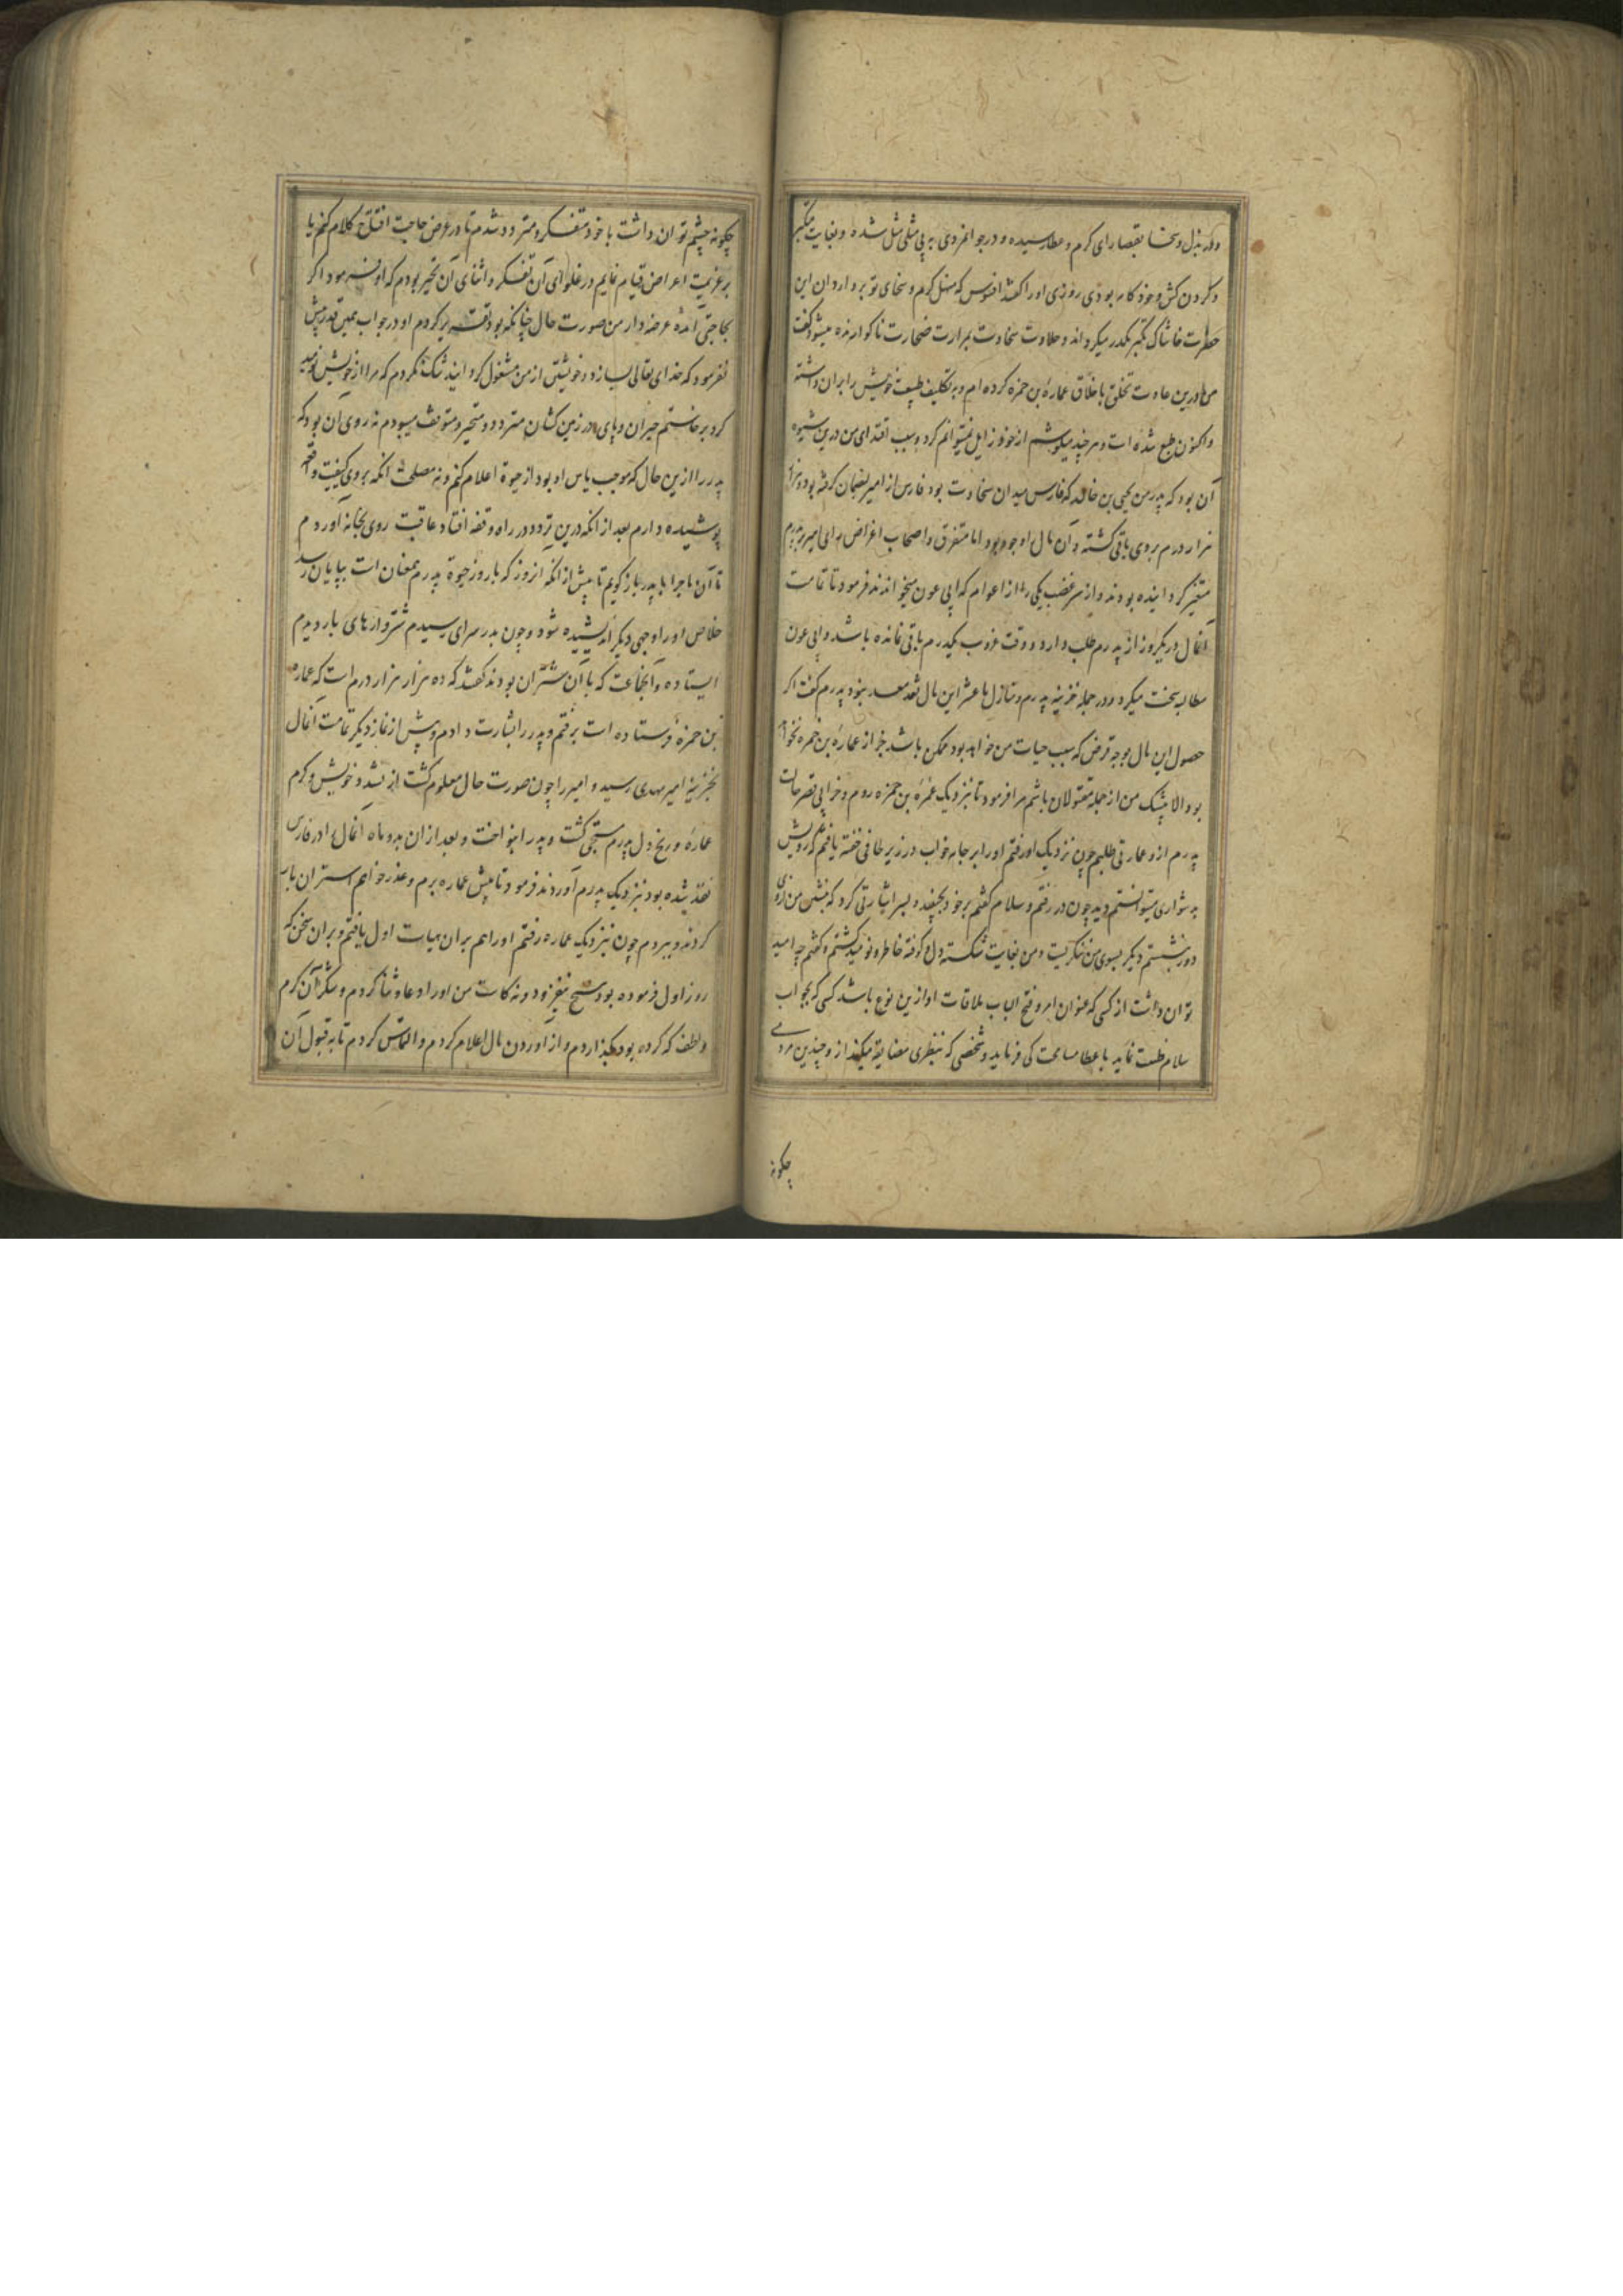 و در بذل و سخا بقصارای کرم و عطا رسیده و در جوانمردی به بی مثلی مثل شده و بغایت متکبر
و گردن کش و خود کامه بودی روزی او را گفتند افسوس که منهل کرم و سخای تو بر واردان این
حضرت خاشاک تکبر مکدر میکرداند و حلاوت سخاوت بمرارت ناکوارنده میشود گفت
من درین عادت تخلق باخلاق عمارة بن حمزه کرده ام و به تکلیف طبیعت خویش را بران داشته
و اکنون طبع شده است و هر چند میکوشم از خود زایل نمیتوانم کرد و سبب اقتدای من درین شیوه
آن بود که پدر من یحیی بن خالد که فارس میدان سخاوت بود فارس از امیر بضمان گرفته بود و هزار
هزار درم بر وی باقی گشته و آن مال اوجوه بود اما متفرق و اصحاب اغراض رای امیر بر پدرم
متغیر گردانیده بودند و از سر غضب یکی را از اعوام که ابی عون میخواندند فرمود تا تمامت
آنمال در یکروز از پدرم طلب دارد و وقت غروب یکدرم باقی نمانده باشد و ابی عون
مطالبه سخت میکرد و در جمله خزینه پدرم و منازل ما عشر این مال نقد معد نبود پدرم گفت اگر
حصول این مال بوجه قرض که سبب حیات من خواهد بود ممکن باشد جز از عمارة بن حمزه نخواهد
بود و الا بیشک من از جمله مقتولان باشم مرا فرمود تا بنزدیک عمرة بن حمزه روم و
پدرم ازو طلبم چون نزدیک او رفتم او را بر جامه خواب در زیر طاقی خفته یافتم که رویش
بدشواری میتوانستم دید چون در رفتم و سلام گفتم بر خود بجنبید و بسر اشارتی کرد که بنشین من ازو
دور بنشستم دیگر بسوی من ننگریست و من بغایت شکسته دل و کوفته خاطر و نومید گشتم و گفتم چه امید
توان داشت از کسی که عنوان امر و فتح الباب ملاقات او ازین نوع باشد کسی که بجواب
سلام ضنت نماید با عطا مسامحت کی فرماید و شخصی که بنظری مضایقه میکند ازو چندین مردمی
چگونه
چگونه چشم توان داشت با خود متفکر و متردد شدم تا در عرض حاجت افتتاح کلام کنم یا
بر عزیمت اعراض قیام نمایم در غلوای آن تفکر و اثنای آن تحیر بودم که او فرمود اگر
بحاجتی آمدۀ عرضه دار من صورت حال چنانکه بود تقریر کردم او در جواب همین قدر بیش
نفرمود که خدای تعالی بسازد و خویشتن از من مشغول گردانید شک نکردم که مرا از خویش نومید
کرد برخاستم حیران و پای در زمین کشان متردد و متحیر و متوقف میبودم نه روی آن بود که
پدر را ازین حال که موجب یاس او بود از حیوة اعلام کنم و نه مصلحت آنکه بر وی کیفیت واقعه
پوشیده دارم بعد از آنکه درین تردد در راه وقفه افتاد عاقبت روی بخانه آوردم
تا آن ماجرا با پدر باز گویم تا پیش از آنکه آنروز که با روز حیوة پدرم همعنان است بپایان رسد
خلاص او را وجهی دیگر اندیشیده شود و چون بدر سرای رسیدم شتروارهای بار دیدم
ایستاده و آنجماعت که با آن شتران بودند گفتند که ده هزار هزار درم است که عمارة
بن حمزۀ فرستاده است برفتم و پدر را بشارت دادم و پیش از نماز دیگر تمامت آنمال
بخزینۀ امیر مهدی رسید و امیر را چون صورت حال معلوم گشت از خویش و کرم
عمارۀ و رنج دل پدرم مستحیی گشت و پدر را بنواخت و بعد از آن بدو ماه آنمال را در فارس
نقد شده بود بنزدیک پدرم آوردند فرمود تا پیش عماره برم و عذر خواهم استران بار
کردند و ببردم چون بنزدیک عماره رفتم او را هم بران هیات اول یافتم و بران سخن که
روز اول فرموده بود هیچ نیفزود و نه کاست من او را دعا و ثنا کردم و شکر آن کرم
و لطف که کرده بود بگذاردم و از آوردن مال اعلام کردم و التماس کردم تا به قبول آن